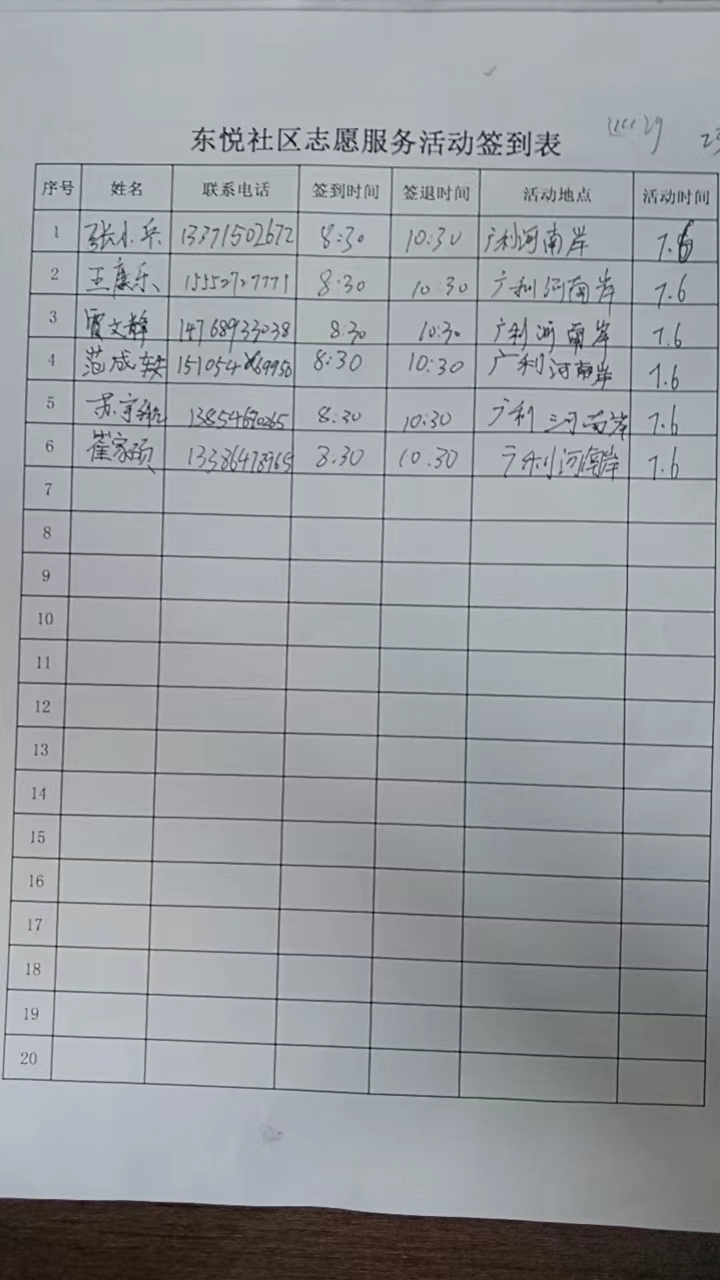 东悦社区志愿服务活动签到表
序号 姓名 联系电话 签到时间 签退时间 活动地点 活动时间
1 张小兵 13371502672 8:30 10:30 广利河南岸 7.6
2 王康乐 15552727771 8:30 10:30 广利河南岸 7.6
3 贾文静 14768933038 8:30 10:30 广利河南岸 7.6
4 范成轶 8:30 10:30 广利河南岸 7.6
5 苏宇航 8:30 10:30 广利河南岸 7.6
6 崔家硕 8:30 10:30 广利河南岸 7.6
7
8
9
10
11
12
13
14
15
16
17
18
19
20